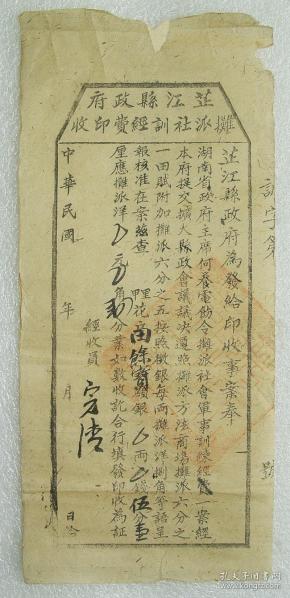 芷江縣政府
攤派社訓經費印收
芷江縣政府為發給印收事案奉
湖南省政府主席何養電飭令攤派社會軍事訓練經費 案經
本府提交擴大縣政會議議決遵照攤派方法商埸攤派六分之
一田賦附加攤派六分之五按照徵銀每兩攤派洋捌角等語呈
報核准在案茲查 里 花 田餘賣 銀 兩 錢伍分壹
厘應攤派洋 元 角 分業如數收訖合行填發印收為証
經收員
中華民國 年 月 日給
訓字第 號
孔夫子旧书网